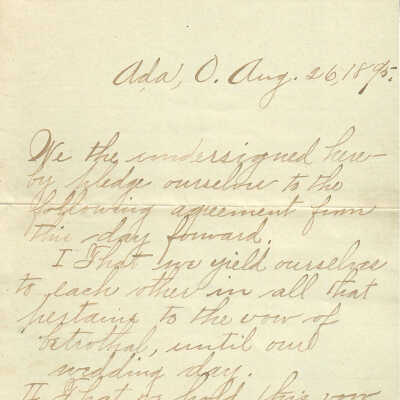 Ada, O. Aug. 26, 1895.
We the undersigned here-
by pledge ourselves to the
following agreement from
this day forward.
I That we yield ourselves
to each other in all that
pertains to the vow of
betrothal, until our
wedding day.
II That we hold this vow